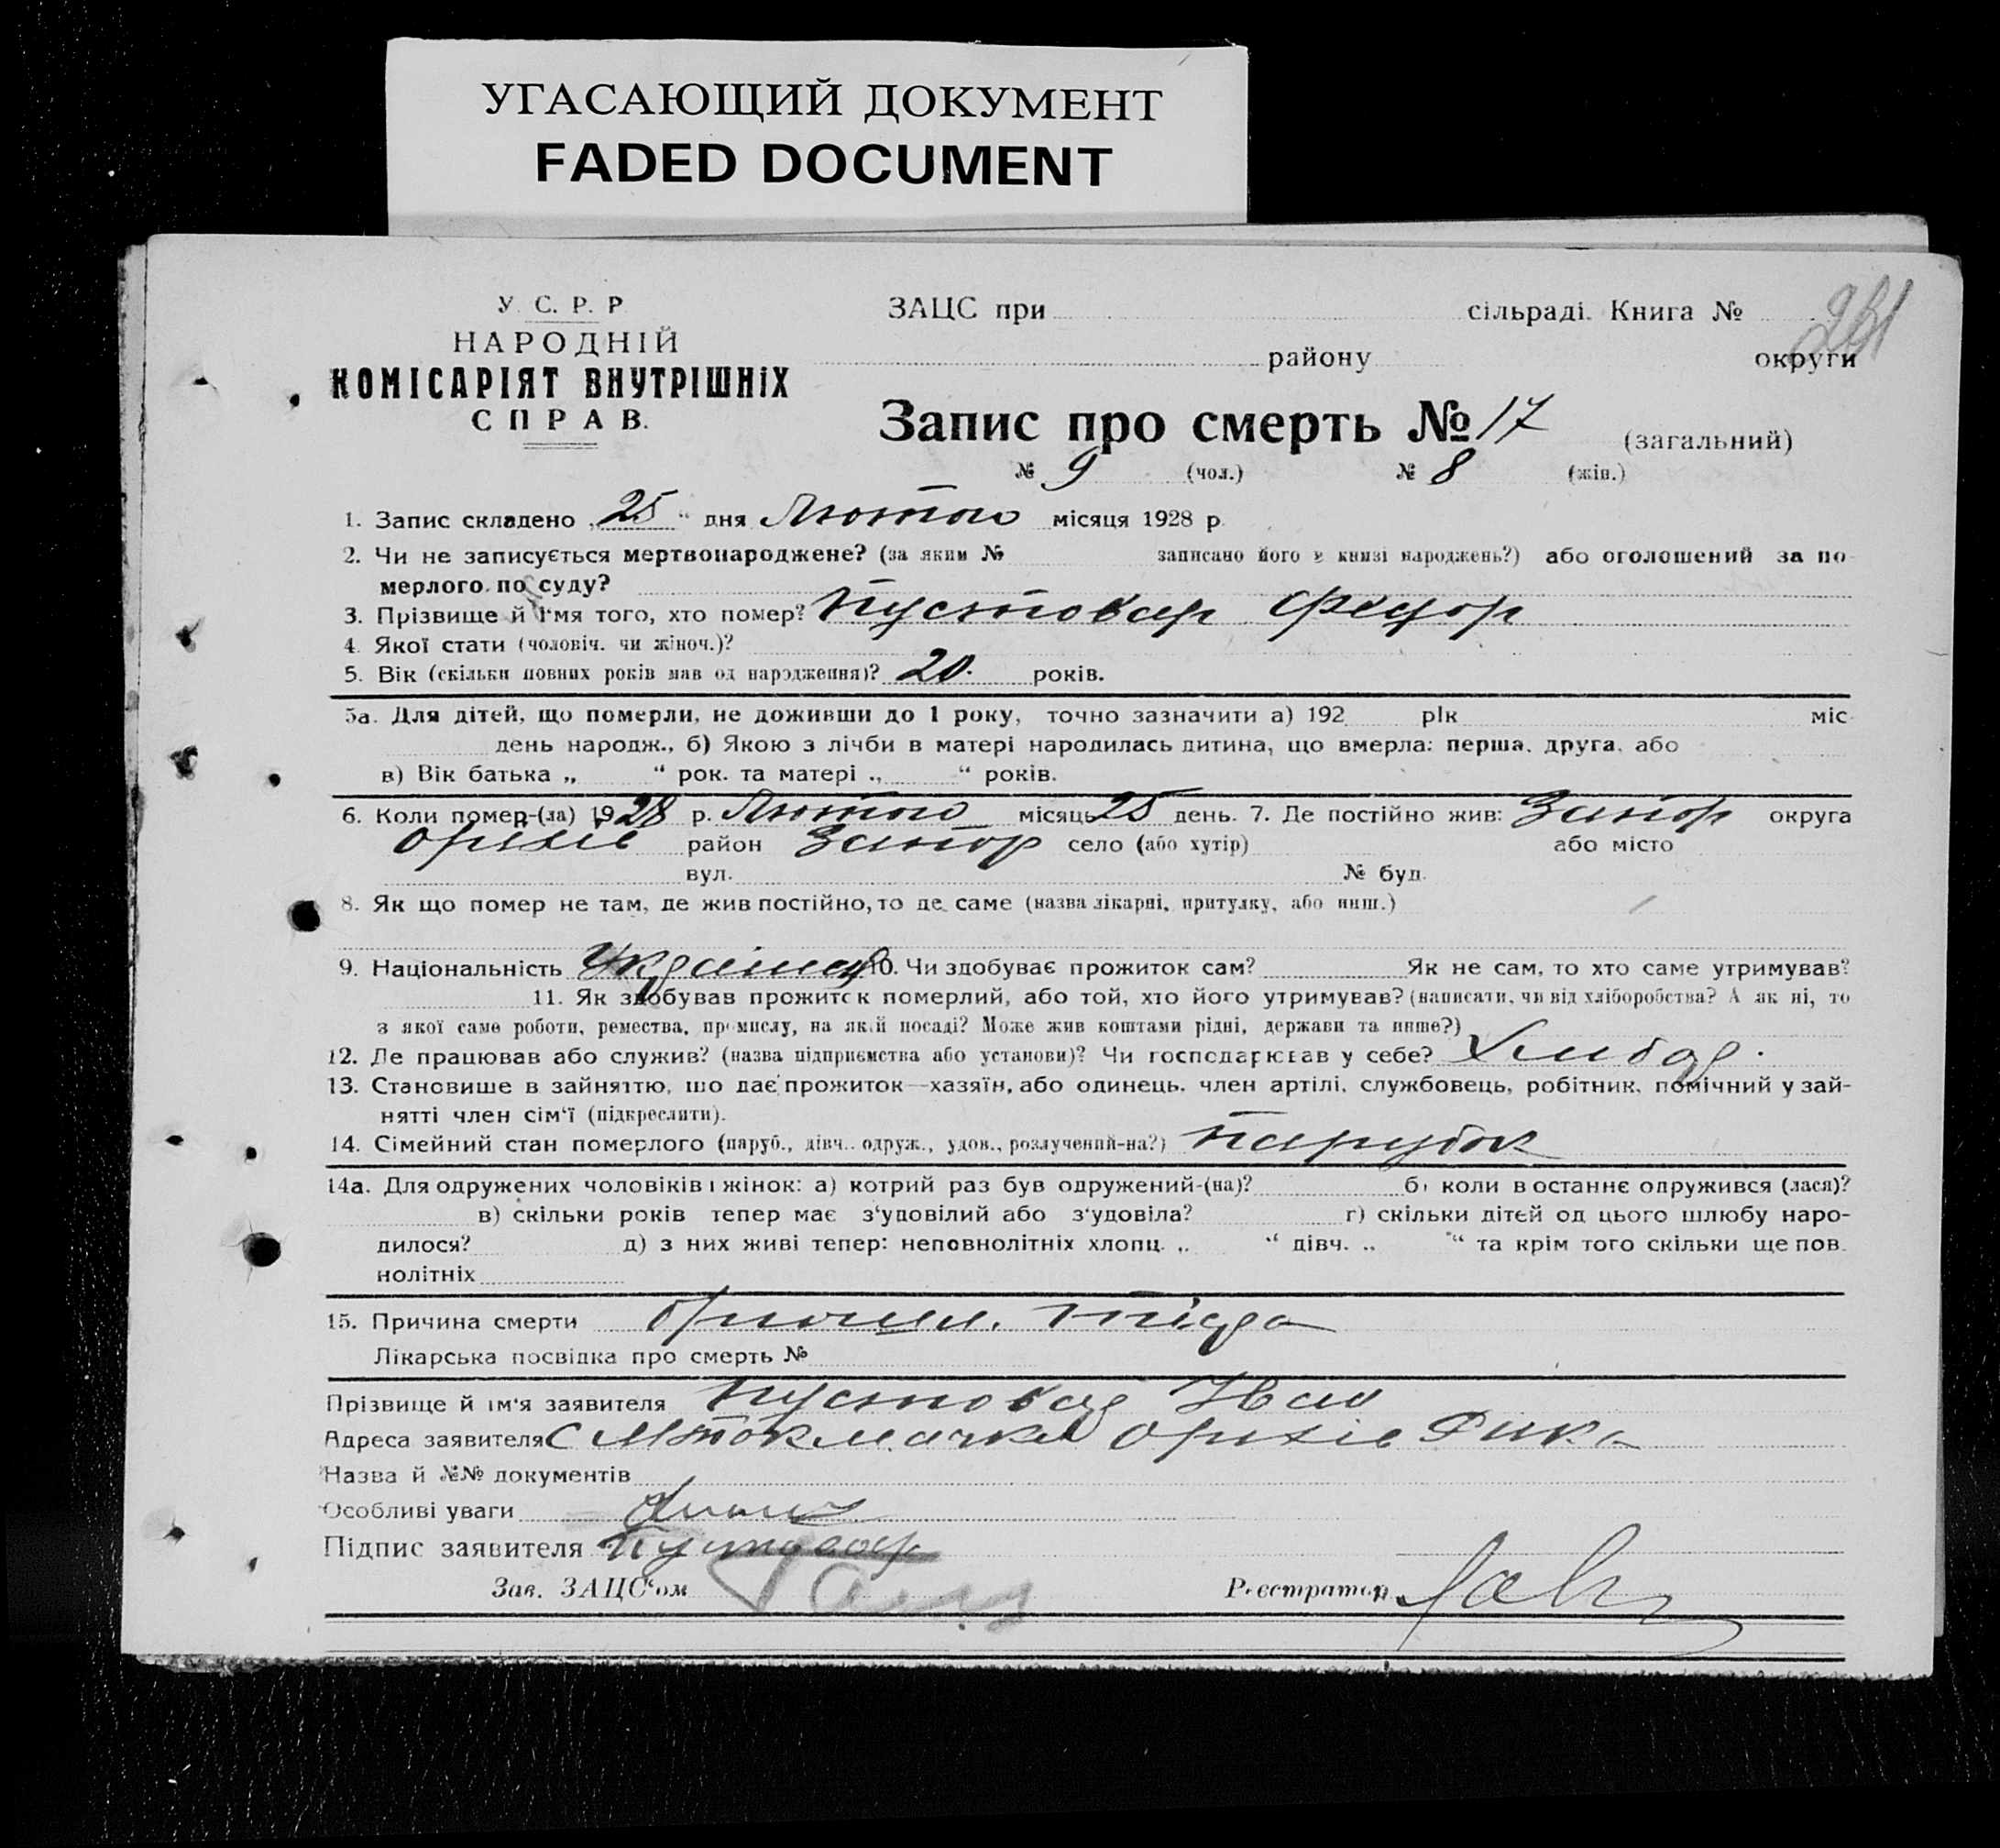 УГАСАЮЩИЙ ДОКУМЕНТ
FADED DOCUMENT
У. С. Р. Р
НАРОДНІЙ
КОМІСАРІЯТ ВНУТРІШНІХ
СПРАВ.
ЗАЦС при сільраді. Книга №
району округи
Запис про смерть № 17 (загальний)
№ 9 (чол.) № 8 (жін.)
1. Запис складено „25“ дня Лютого місяця 1928 р.
2. Чи не записується мертвонароджене? (за яким № записано його в книзі народжень?) або оголошений за по-
мерлого по суду?
3. Прізвище й ім'я того, хто помер? Пустовар Федор
4. Якої стати (чоловіч. чи жіноч.)?
5. Вік (скільки повних років мав од народження)? 20. років.
5а. Для дітей, що померли, не доживши до 1 року, точно зазначити а) 192 рік міс.
день народж., б) Якою з лічби в матері народилась дитина, що вмерла: перша, друга, або
в) Вік батька „ “ рок. та матері „ “ років.
6. Коли помер-(ла) 1928 р. Лютого місяць 25 день. 7. Де постійно жив: Запор округа
Оріхів район село (або хутір) або місто
вул. № буд.
8. Як що помер не там, де жив постійно, то де саме (назва лікарні, притулку, або инш.)
9. Національність 10. Чи здобуває прожиток сам? Як не сам, то хто саме утримував?
11. Як здобував прожиток померлий, або той, хто його утримував? (написати, чи від хліборобства? А як ні, то
з якої саме роботи, ремества, промислу, на якій посаді? Може жив коштами рідні, держави та инше?)
12. Де працював або служив? (назва підприємства або установи)? Чи господарював у себе? Хлибор.
13. Становище в зайняттю, що дає прожиток—хазяїн, або одинець, член артілі, службовець, робітник, помічний у зай-
нятті член сім'ї (підкреслити).
14. Сімейний стан померлого (паруб., дівч., одруж., удов., розлучений-на?) парубок
14а. Для одружених чоловіків і жінок: а) котрий раз був одружений-(на)? б) коли в останнє одружився (лася)?
в) скільки років тепер має з'удовілий або з'удовіла? г) скільки дітей од цього шлюбу наро-
дилося? д) з них живі тепер: неповнолітніх хлопц. „ “ дівч. „ “ та крім того скільки ще пов.
нолітніх
15. Причина смерти
Лікарська посвідка про смерть №
Прізвище й ім'я заявителя Пустовар Иван
Адреса заявителя Оріхів
Назва й №№ документів
Особливі уваги
Підпис заявителя Пустовар
Зав. ЗАЦС'ом Реєстратор